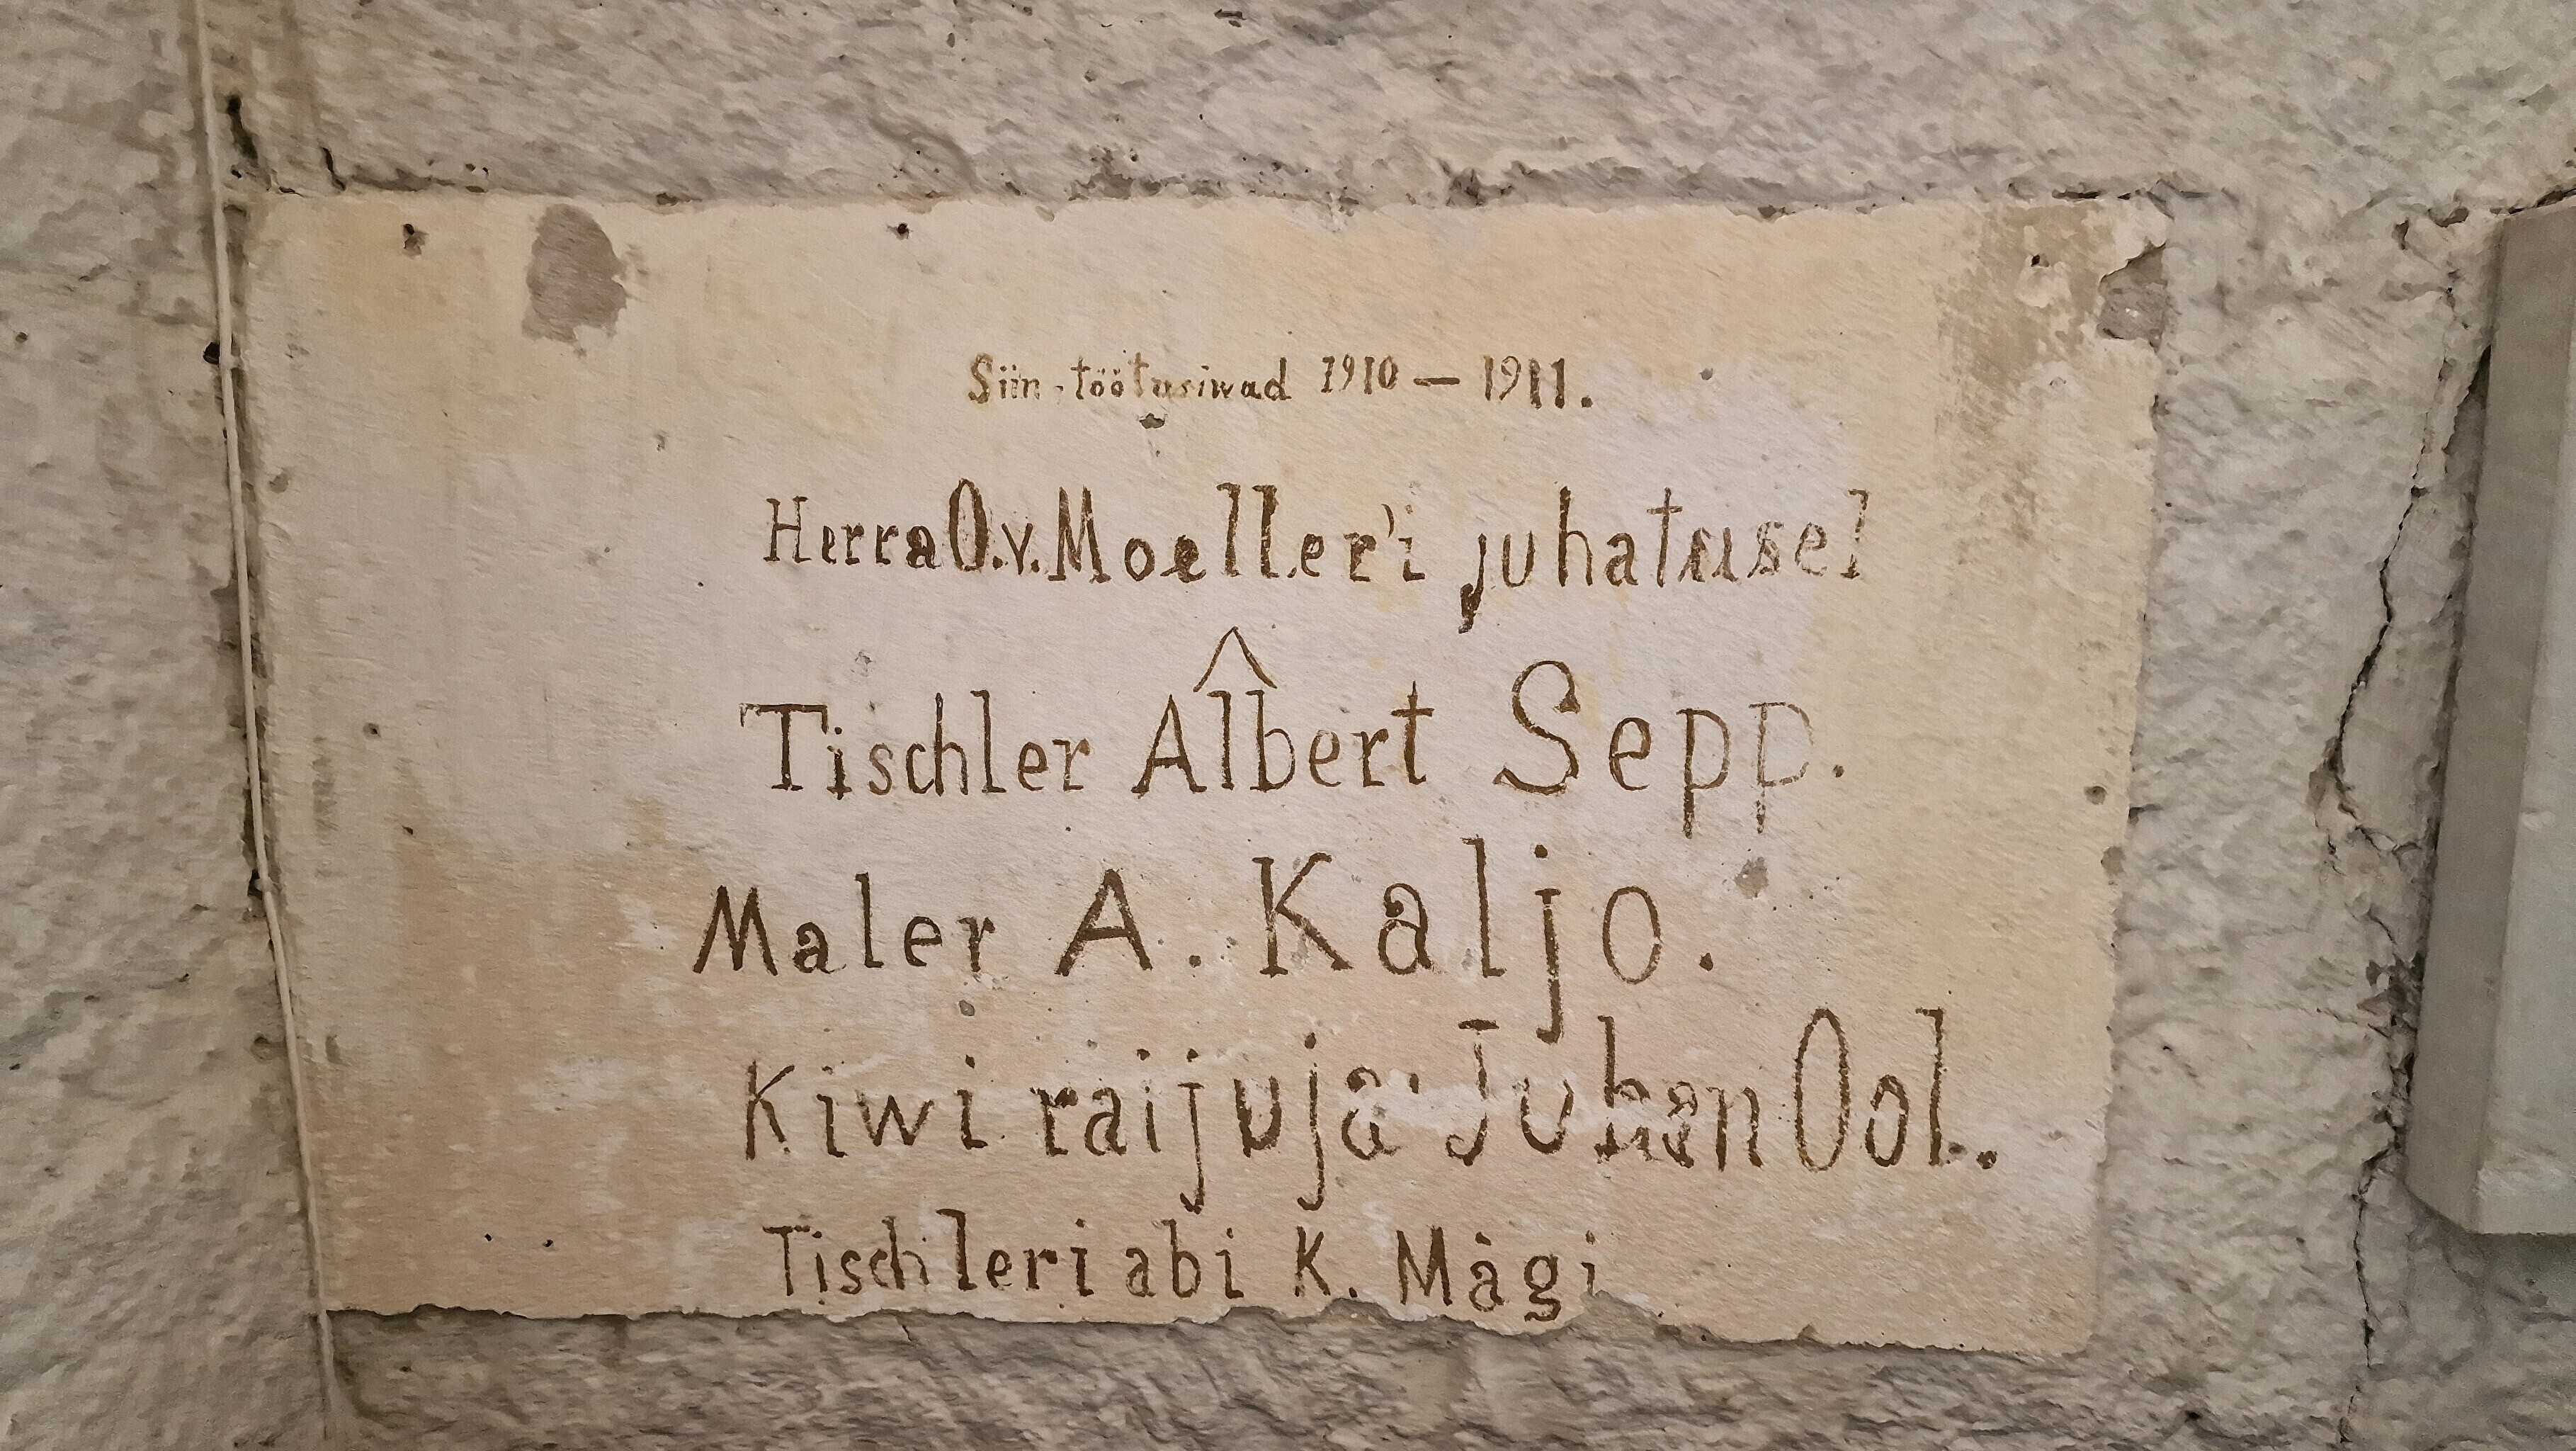 Siin töötusiwad 1910 — 1911.
Herra O.v. Moeller'i juhatusel
Tischler Albert Sepp.
Maler A. Kaljo.
Kiwi raijuja Juhan Ool.
Tischleri abi K. Mägi